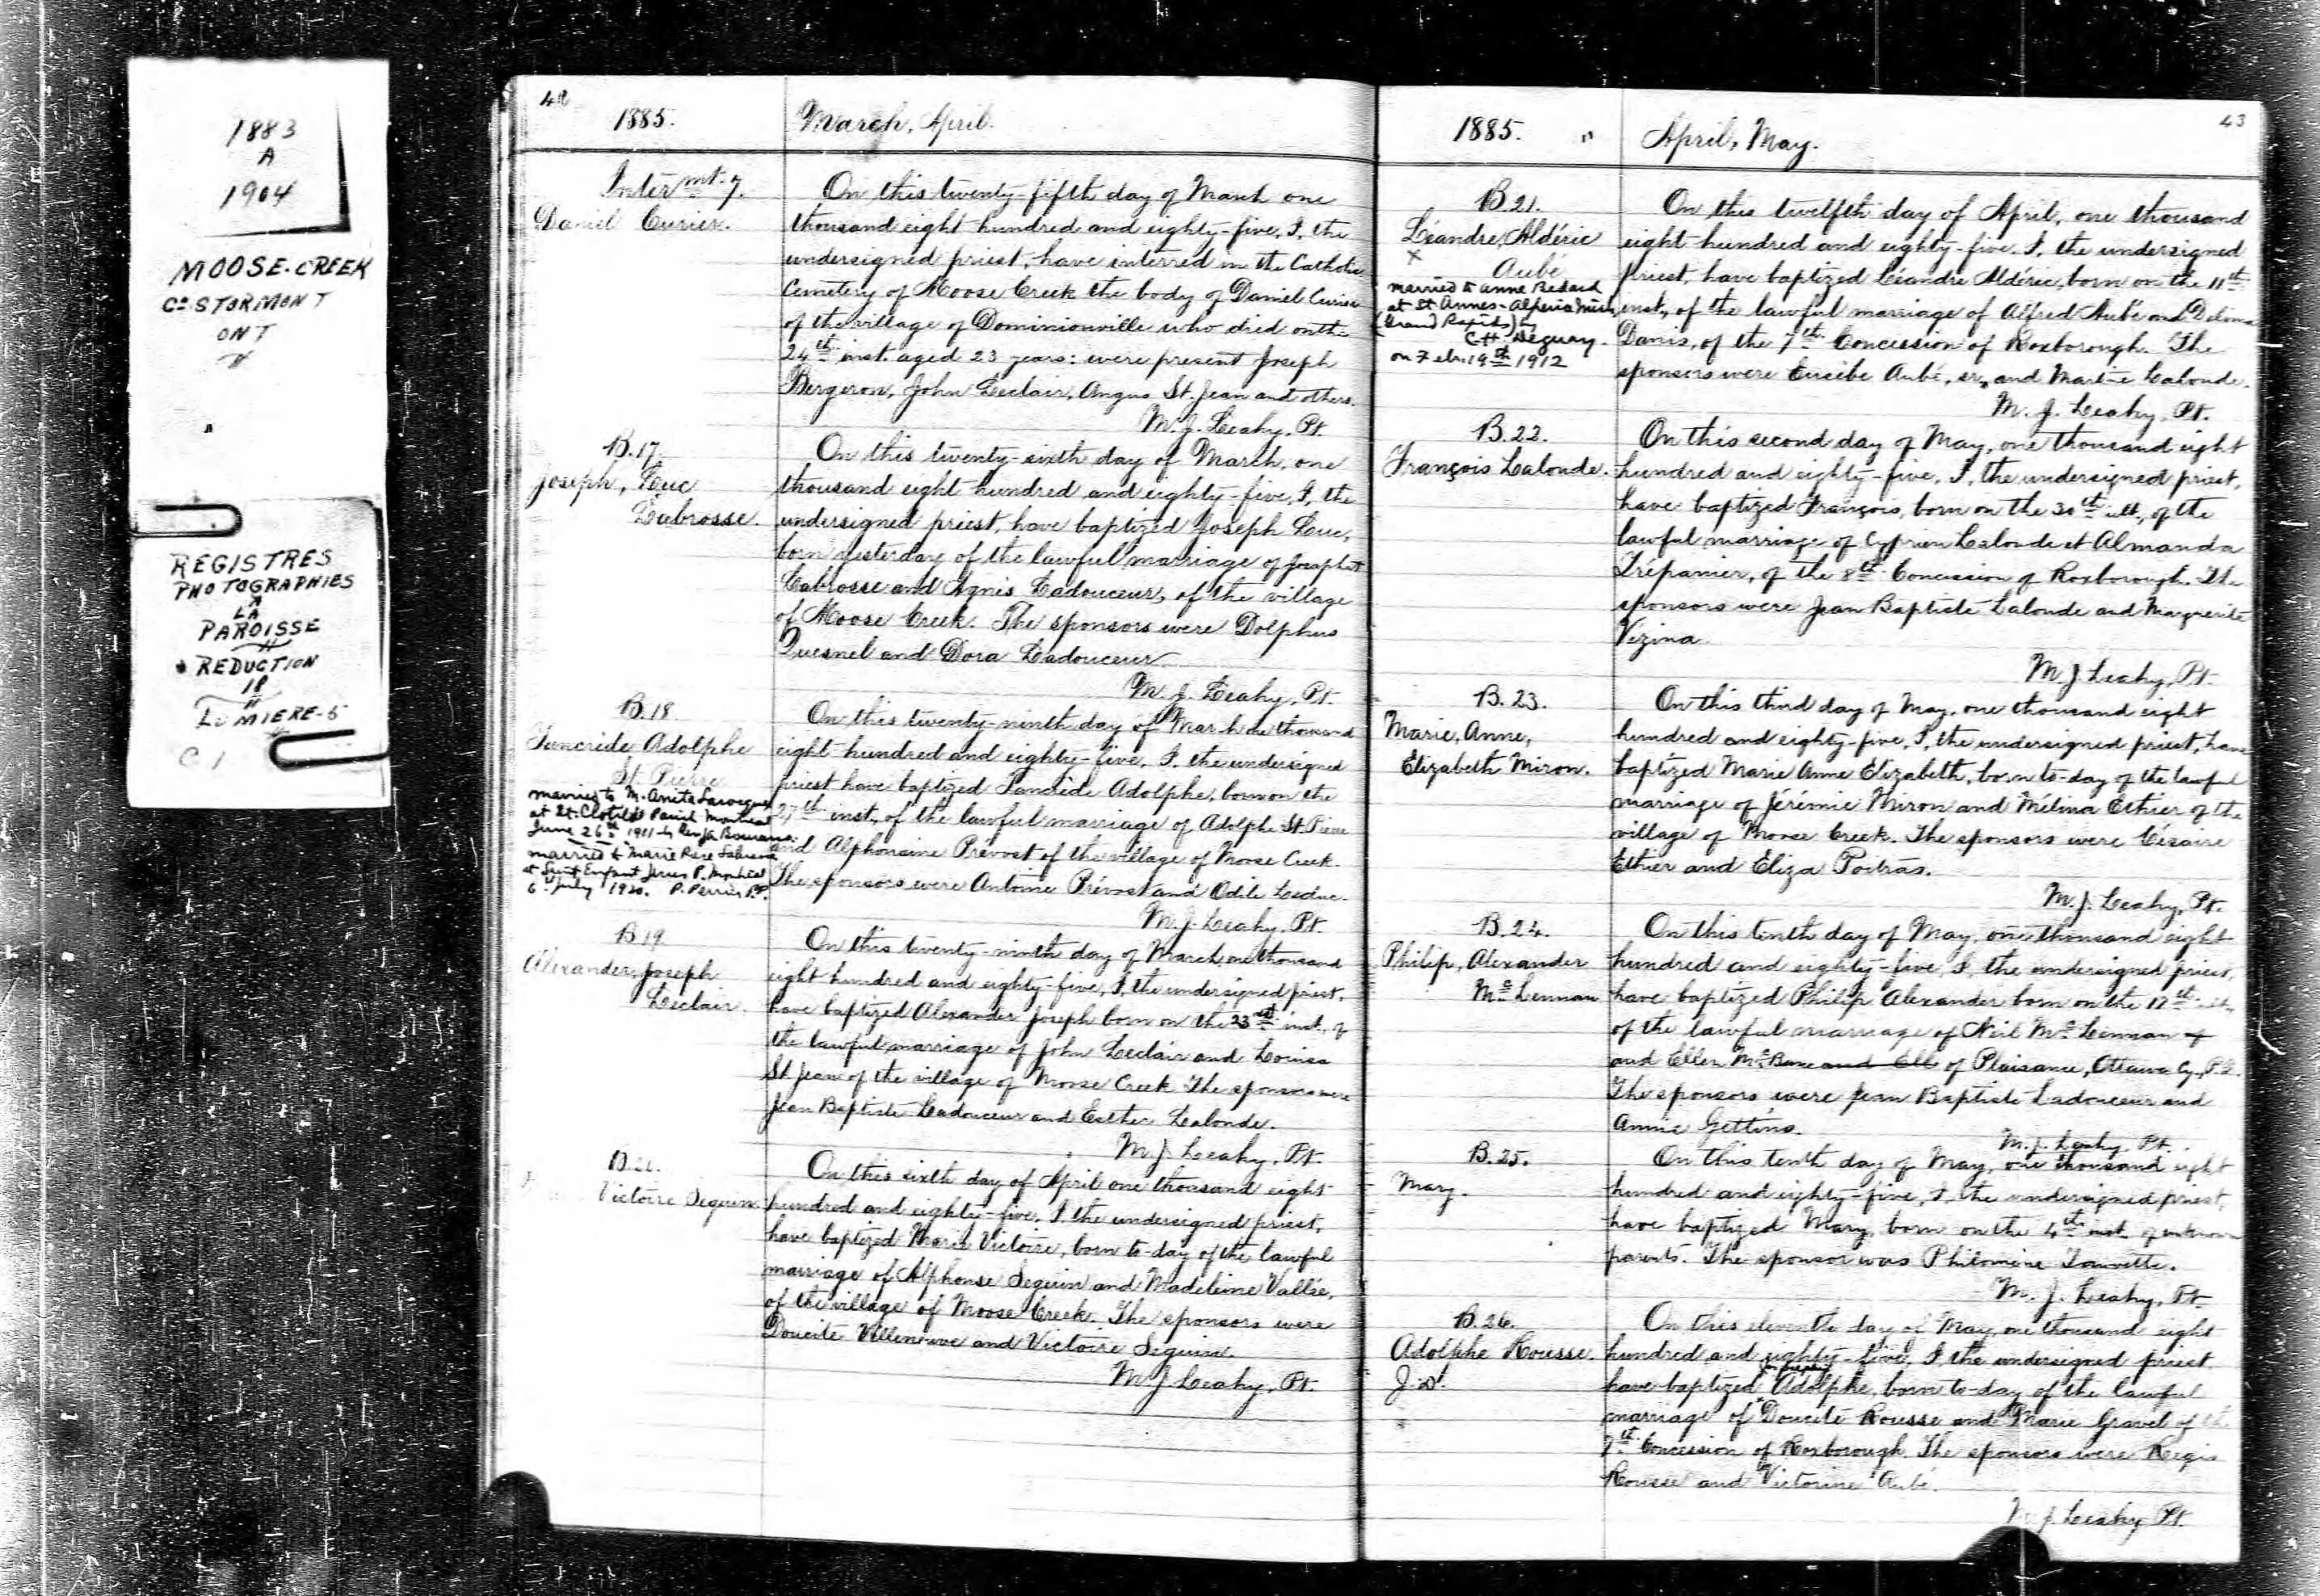 1883
A
1904
MOOSE-CREEK
Co STORMONT
ONT
REGISTRES
PHOTOGRAPHIES
A
LA
PAROISSE
REDUCTION
18
LUMIERE-5
C 1
42
1885.
March, April.
Intermt. 7.
Daniel Curier.
On this twenty-fifth day of March one
thousand eight hundred and eighty-five, I, the
undersigned priest, have interred in the Catholic
Cemetery of Moose Creek the body of Daniel Curier
of the village of Dominionville who died on the
24th inst. aged 23 years: were present Joseph
Bergeron, John Leclair, Angus St. Jean and others.
M. J. Leahy, Pt.
B.17.
Joseph, Luc
Labrosse.
On this twenty-sixth day of March, one
thousand eight hundred and eighty-five, I, the
undersigned priest, have baptized Joseph Luc,
born yesterday of the lawful marriage of Josaphat
Labrosse and Agnis Ladouceur, of the village
of Moose Creek. The sponsors were Dolphus
Quesnel and Dora Ladouceur.
M. J. Leahy, Pt.
B.18.
Tancride Adolphe
St. Pierre
married to M. Anita Larocque
at St. Clotilde Parish Montreal
June 26th 1911
married to Marie Rose
at Saint Enfant Jesus P. Montreal
6th July 1920. P. Perrier P.P.
On this twenty-ninth day of March one thousand
eight hundred and eighty-five, I, the undersigned
priest have baptized Tancride Adolphe, born on the
27th inst, of the lawful marriage of Adolphe St. Pierre
and Alphonsine Prévost of the village of Moose Creek.
The sponsors were Antoine Prévost and Odile Leduc.
M. J. Leahy, Pt.
B.19
Alexander, Joseph
Leclair.
On this twenty-ninth day of March, one thousand
eight hundred and eighty-five, I, the undersigned priest,
have baptized Alexander Joseph born on the 23rd inst, of
the lawful marriage of John Leclair and Louisa
St. Jean of the village of Moose Creek. The sponsors were
Jean Baptiste Ladouceur and Esther Lalonde.
M. J. Leahy, Pt.
B.20.
Victoire Seguin.
On this sixth day of April one thousand eight
hundred and eighty-five, I, the undersigned priest,
have baptized Marie Victoire, born to-day of the lawful
marriage of Alphonse Seguin and Madeleine Vallée,
of the village of Moose Creek. The sponsors were
Doucité Villeneuve and Victoire Seguin.
M. J. Leahy, Pt.
43
1885.
April, May.
B.21.
Léandre, Aldéric
X
Aubé
married to Anne Bedard
at St. Annes - Alperia Mich,
(Grand Rapids) by
C H Deguay.
on Feb. 19th 1912
On this twelfth day of April, one thousand
eight hundred and eighty-five, I, the undersigned
priest, have baptized Léandre Aldéric, born on the 11th
inst., of the lawful marriage of Alfred Aubé and Delima
Danis, of the 7th Concession of Roxborough. The
sponsors were Eusèbe Aubé, sr., and Martine Lalonde.
M. J. Leahy, Pt.
B.22.
François Lalonde.
On this second day of May, one thousand eight
hundred and eighty-five, I, the undersigned priest,
have baptized François, born on the 30th ult, of the
lawful marriage of Cyprien Lalonde et Almanda
Trépanier, of the 8th Concession of Roxborough. The
sponsors were Jean Baptiste Lalonde and Marguerite
Vezina.
M. J. Leahy, Pt.
B.23.
Marie, Anne,
Elizabeth Miron.
On this third day of May, one thousand eight
hundred and eighty-five, I, the undersigned priest, have
baptized Marie Anne Elizabeth, born to-day of the lawful
marriage of Jérémie Miron and Mélina Ethier of the
village of Moose Creek. The sponsors were Césaire
Ethier and Eliza Poitras.
M. J. Leahy, Pt.
B.24.
Philip, Alexander
Mc Lennan
On this tenth day of May, one thousand eight
hundred and eighty-five, I, the undersigned priest,
have baptized Philip Alexander born on the 12th ult,
of the lawful marriage of Neil Mc Lennan of
and Ellen Mc Bane and Elle of Plaisance, Ottawa Cy., P.Q.
The sponsors were Jean Baptiste Ladouceur and
Annie Gettins.
M. J. Leahy, Pt.
B.25.
Mary.
On this tenth day of May, one thousand eight
hundred and eighty-five, I, the undersigned priest,
have baptized Mary, born on the 4th inst. of unknown
parents. The sponsor was Philomène Jouvette.
M. J. Leahy, Pt.
B.26.
Adolphe Rousse.
On this eleventh day of May, one thousand eight
hundred and eighty-five, I the undersigned priest
have baptized Adolphe, born to-day of the lawful
marriage of Doucité Rousse and Marie Gravel of the
7th Concession of Roxborough. The sponsors were Regis
Rousse and Victorine Aubé.
M. J. Leahy Pt.